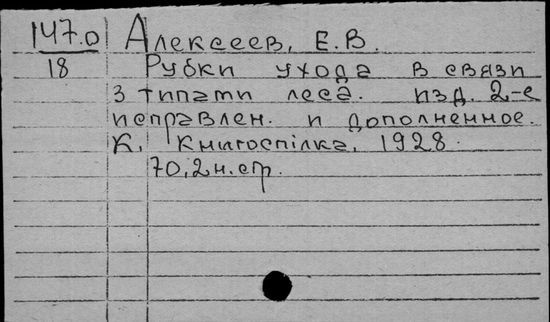 147.0 Алексеев, Е.В.
18 Рубки ухода в связи
з типами леса. изд. 2-е
исправлен. и дополненное.
К. Книгоспілка, 1928.
70,2 н.стр.